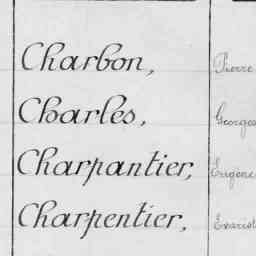 Charbon, Pierre
Charles, Georges
Charpantier, Eugène
Charpentier, Evarist